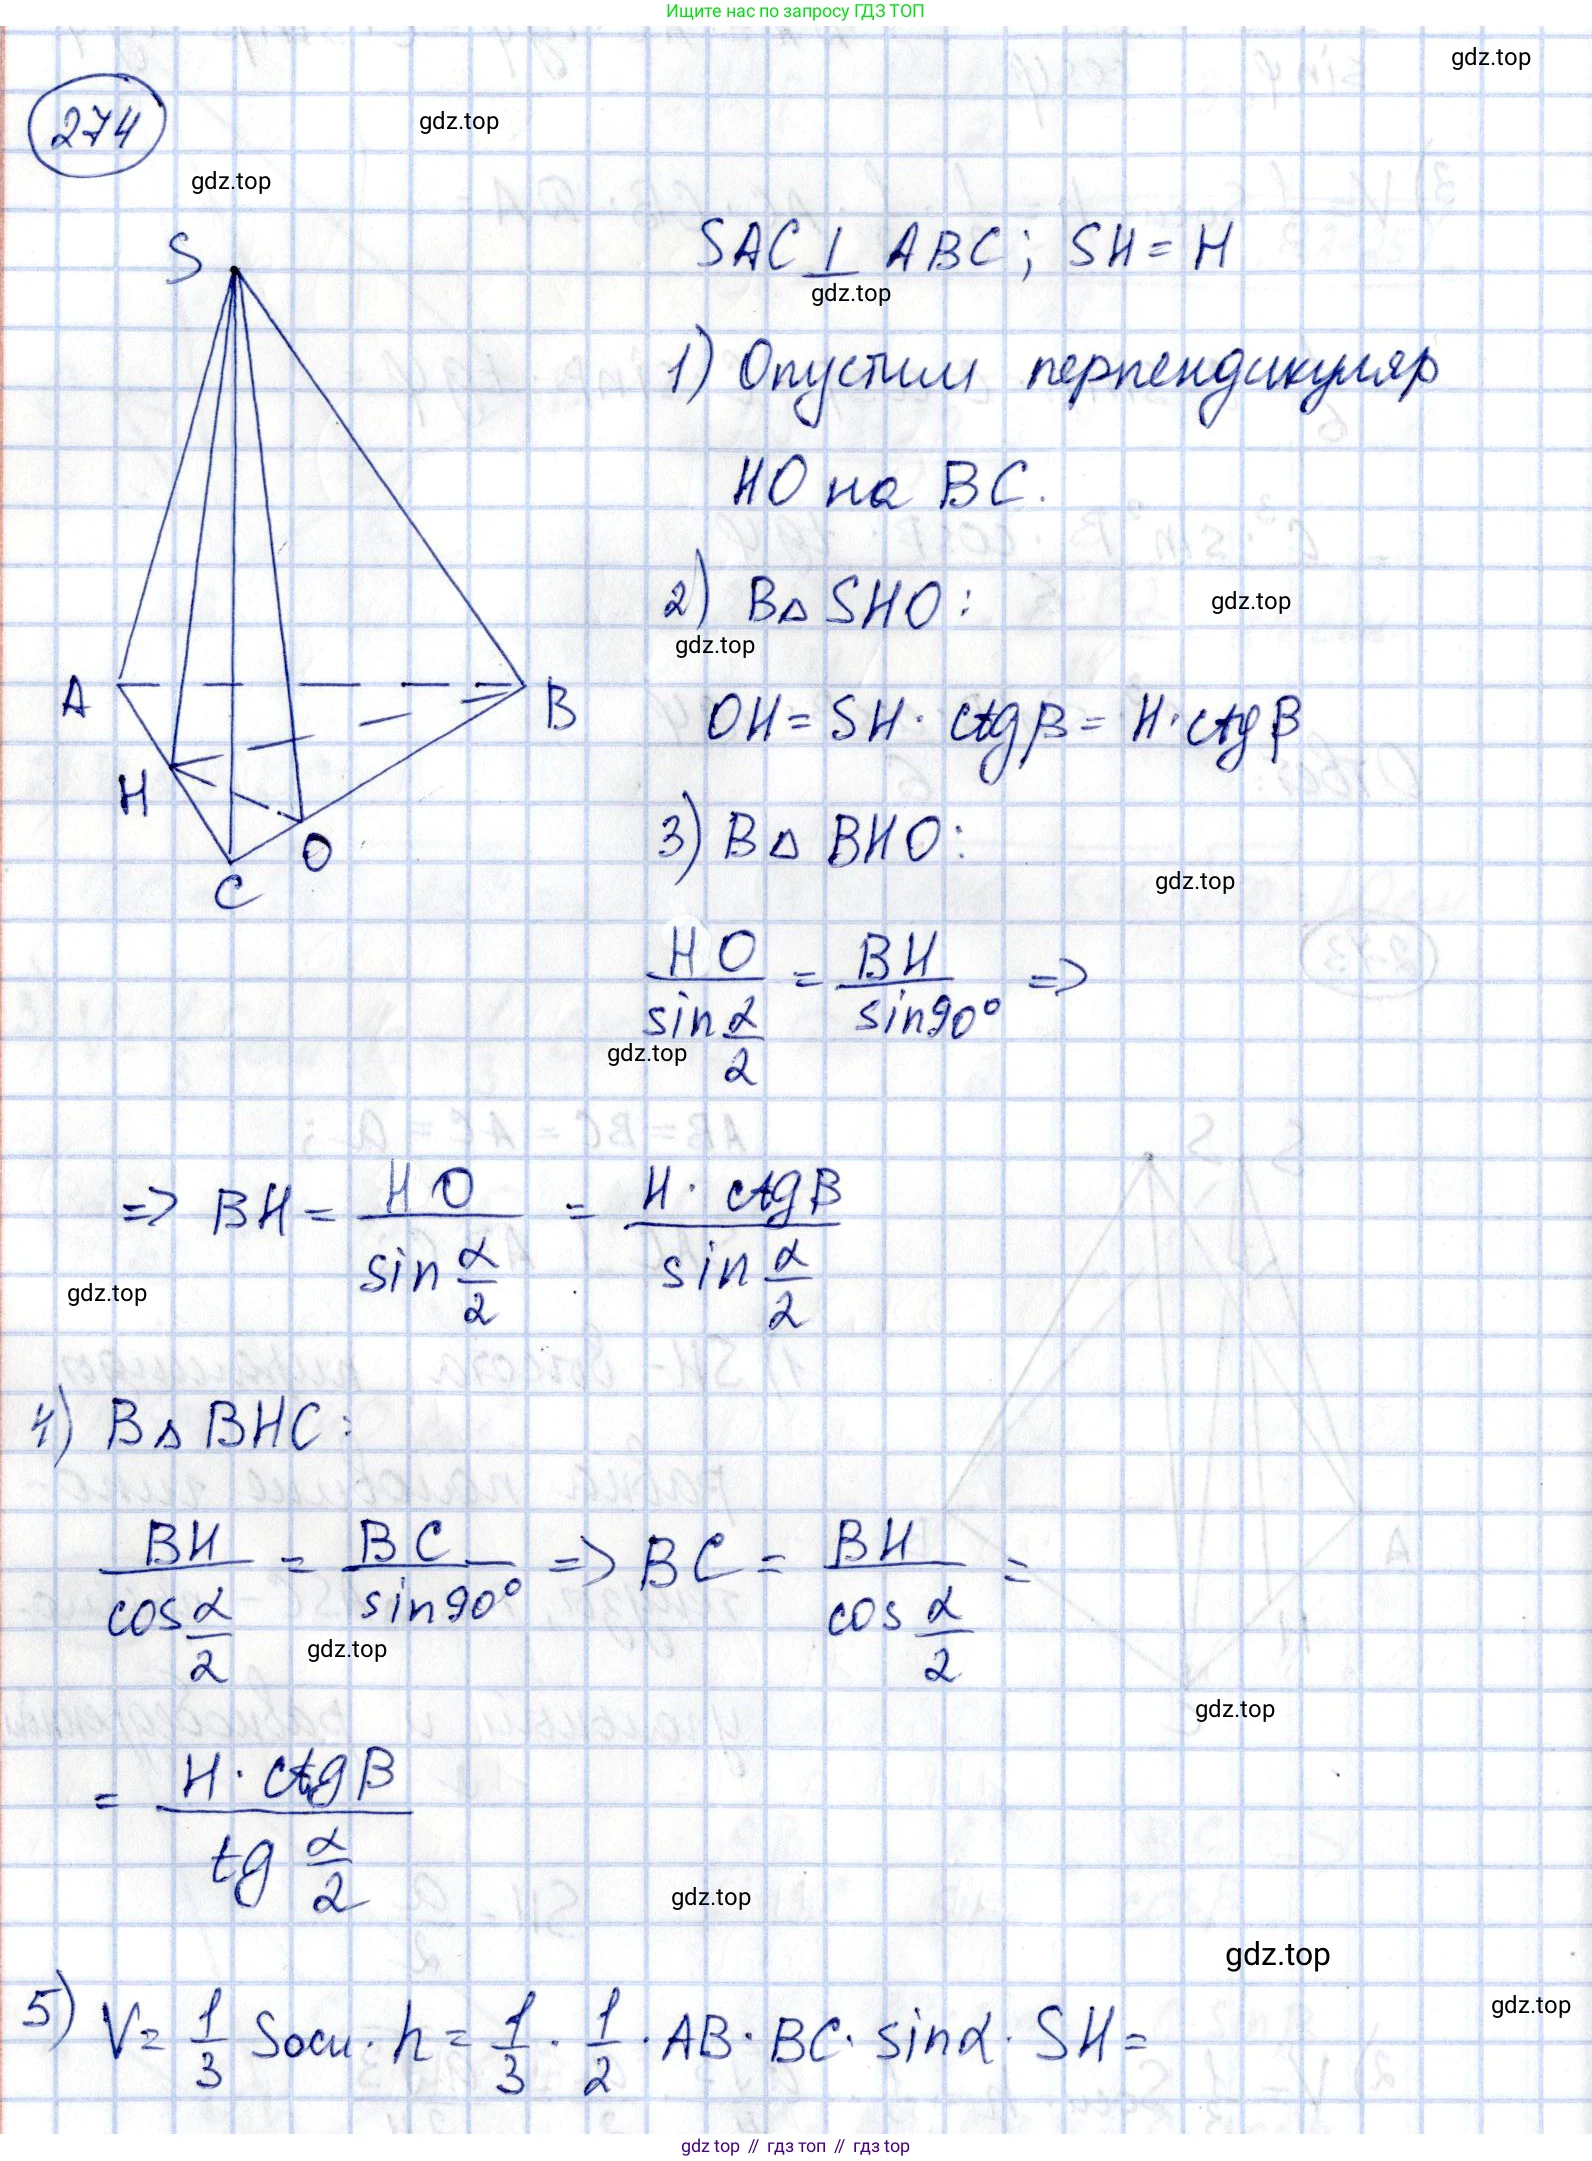 Ищите нас по запросу ГДЗ ТОП
gdz.top
274
gdz.top
gdz.top
S
A
B
H
O
C
SAC ⊥ ABC; SH = H
gdz.top
1) Опустим перпендикуляр
HO на BC.
2) В△ SHO:
gdz.top
gdz.top
OH = SH · ctgβ = H · ctgβ
3) В △ BHO:
gdz.top
HO / sin α/2 = BH / sin90° =>
gdz.top
=> BH = HO / sin α/2 = H · ctgβ / sin α/2
gdz.top
4) В△ BHC:
BH / cos α/2 = BC / sin90° => BC = BH / cos α/2 =
gdz.top
gdz.top
= H · ctgβ / tg α/2
gdz.top
gdz.top
gdz.top
5) V = 1/3 Sосн · h = 1/3 · 1/2 · AB · BC · sinα · SH =
gdz.top // гдз топ // гдз top